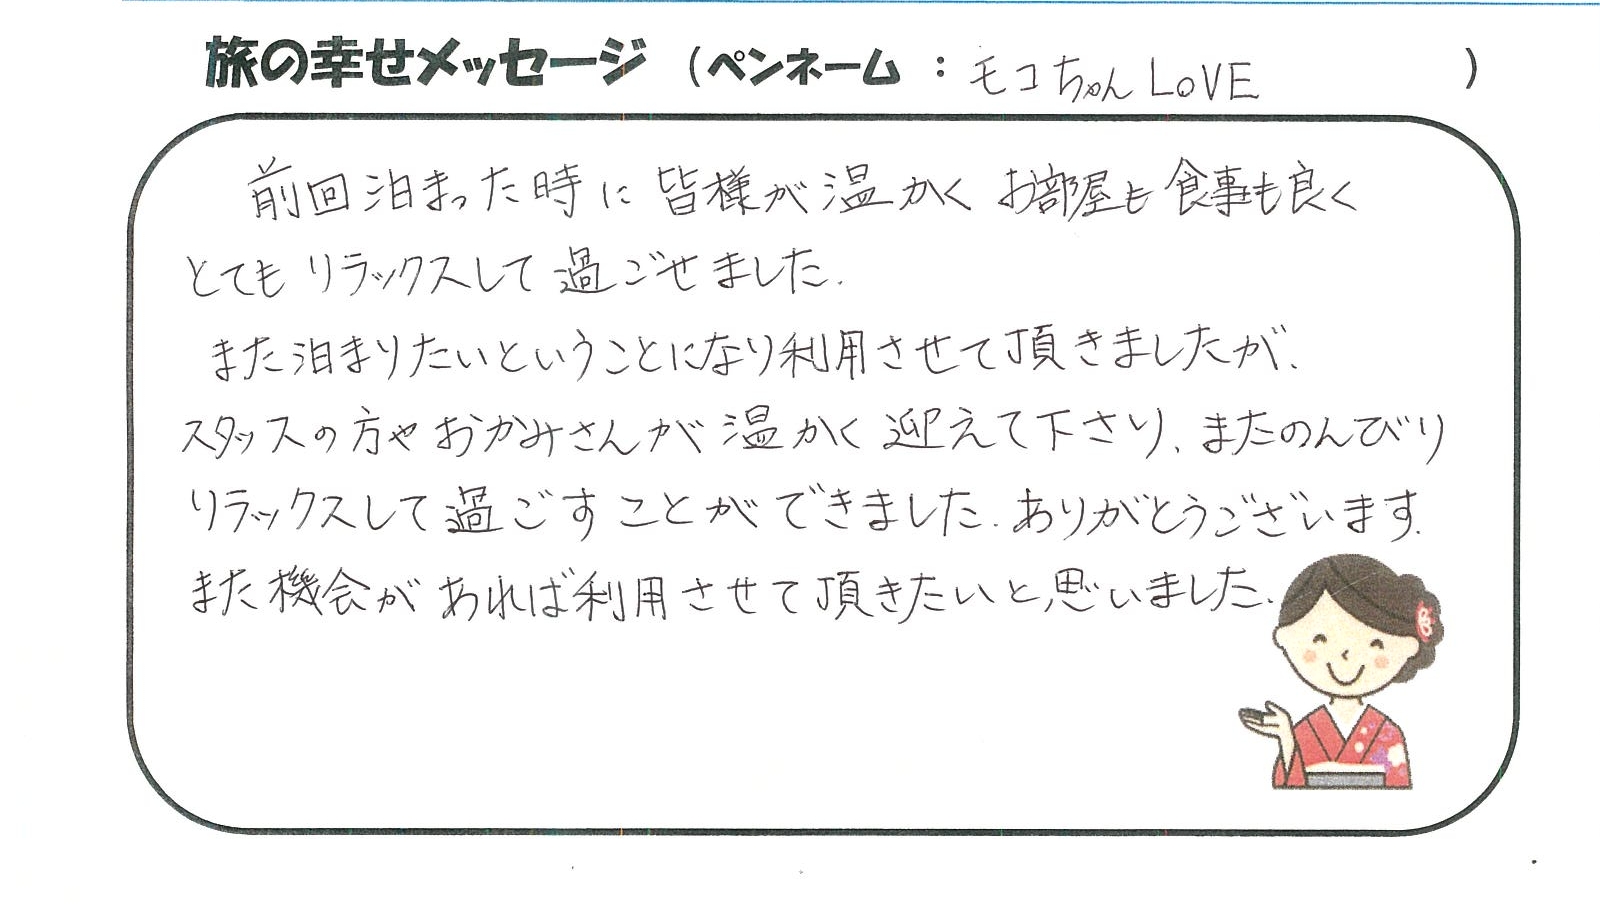 旅の幸せメッセージ (ペンネーム : モコちゃん LoVE )
前回 泊まった時に 皆様が 温かく お部屋も 食事も良く
とても リラックスして 過ごせました.
また泊まりたいということになり利用させて頂きましたが、
スタッスの方や おかみさんが 温かく 迎えて下さり、またのんびり
リラックスして 過ごすことができました. ありがとうございます.
また機会が あれば利用させて頂きたいと思いました.